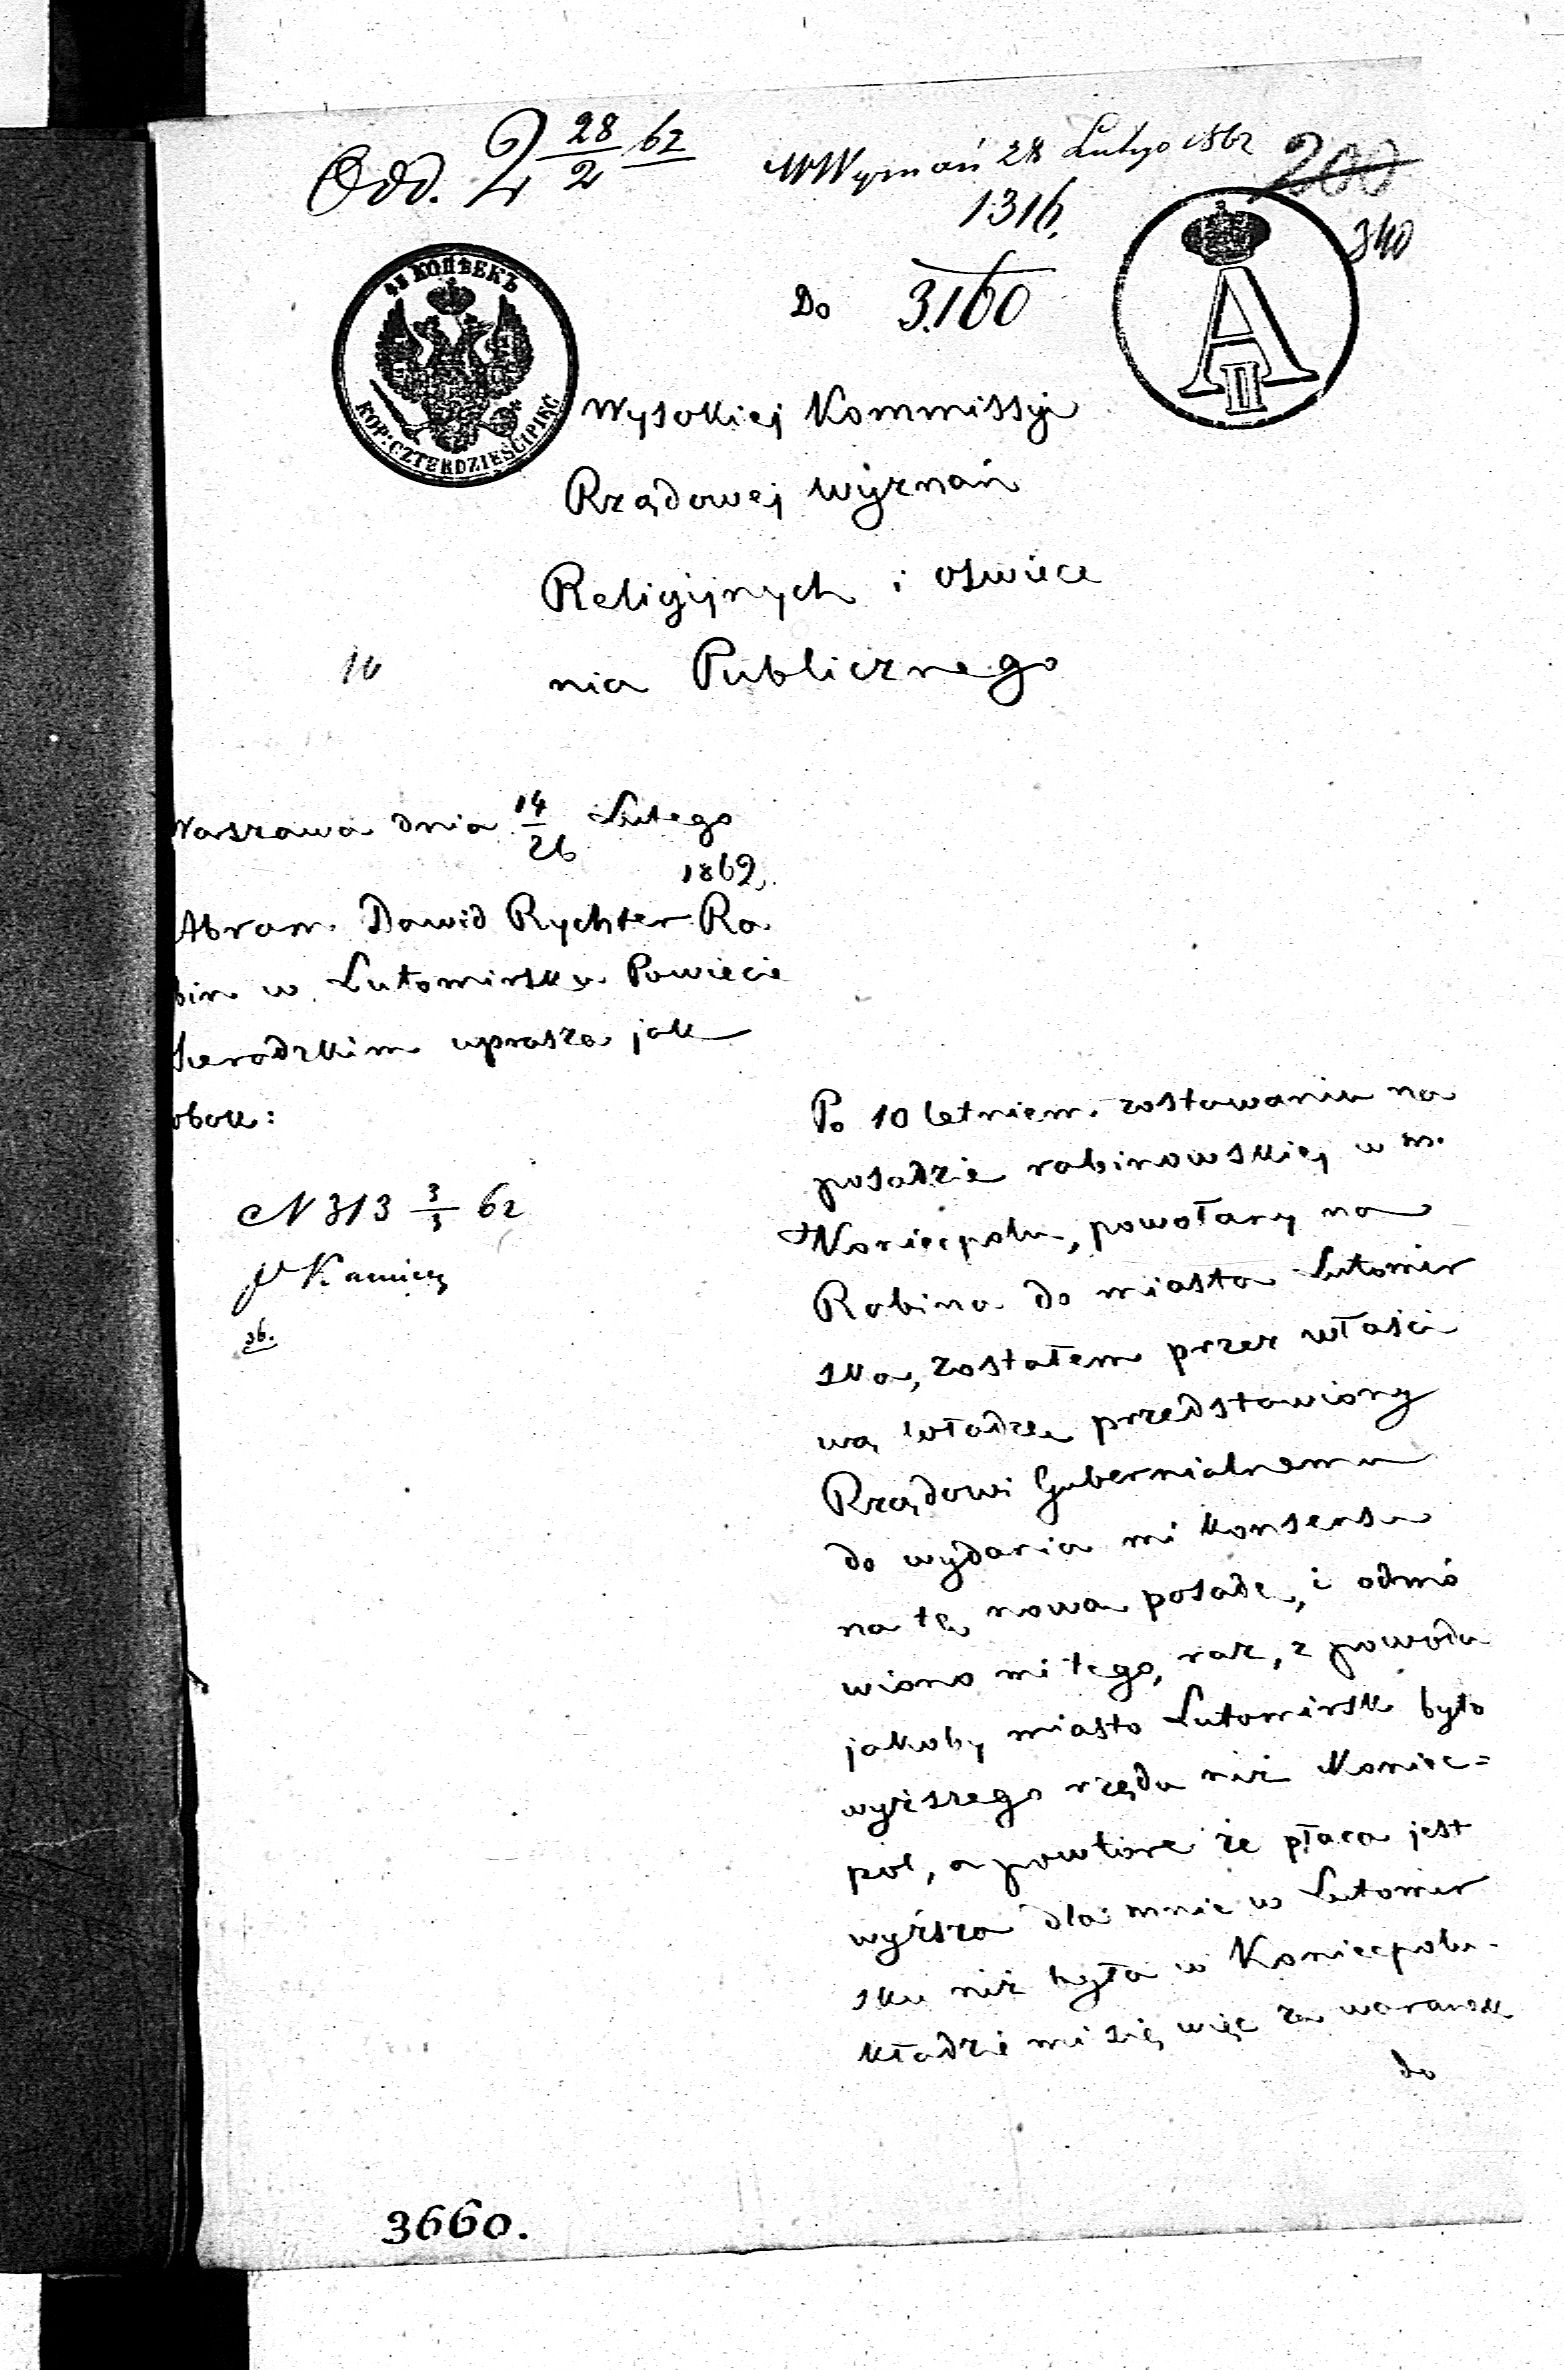 Odd. 2 28/2 62
WWyznań 28 Lutego 1862
200
1316.
340
45 КОПѢЕКЪ
KOP: CZTERDZIEŚCI PIĘĆ
A II
Do 3.160
Wysokiej Kommissyi
Rządowej Wyznań
Religijnych i oswiece
nia Publicznego
10
Warszawa dnia 14/26 Lutego
1862.
Abram Dawid Rychter Ra
bin w Lutomirsku Powiecie
Sieradzkim uprasza jak
obok:
Po 10 letniem zostawaniu na
posadzie rabinowskiej w m.
Koniecpolu, powołany na
Rabina do miasta Lutomir
ska, zostałem przez właści
wą władzę przedstawiony
Rządowi Gubernialnemu
do wydania mi konsensu
na tę nowa posadę, i odmó
wiono mi tego, raz, z powodu
jakoby miasto Lutomirsk było
wyższego rzędu niż Koniec=
pol, a powtóre że płaca jest
wyższa dla mnie w Lutomir
sku niż była w Koniecpolu.
kładzie mi się więc za warunek
do
N 313 3/3 62
36.
3660.